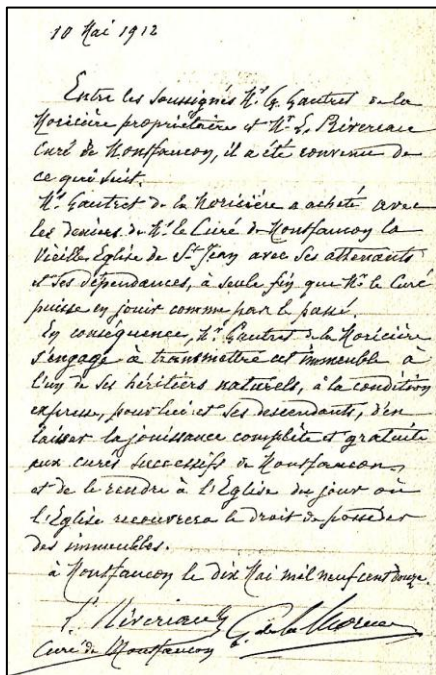 10 Mai 1912
Entre les soussignés Mr G. Gautret de la
Moricière propriétaire et Mr E. Rivereau
Curé de Montfaucon, il a été convenu de
ce qui suit.
Mr Gautret de la Moricière a acheté avec
les deniers de Mr le Curé de Montfaucon la
vieille Eglise de St Jean avec ses attenants
et ses dépendances, à seule fin que Mr le Curé
puisse en jouir comme par le passé.
En conséquence, Mr Gautret de la Moricière
s'engage à transmettre cet immeuble à
l'un de ses héritiers naturels, à la condition
expresse, pour lui et ses descendants, d'en
laisser la jouissance complète et gratuite
aux curés successifs de Montfaucon,
et de le rendre à l'Eglise du jour où
l'Eglise recouvrera le droit de posséder
des immeubles.
à Montfaucon le dix Mai mil neuf cent douze.
Rivereau G. de la
Curé de Montfaucon